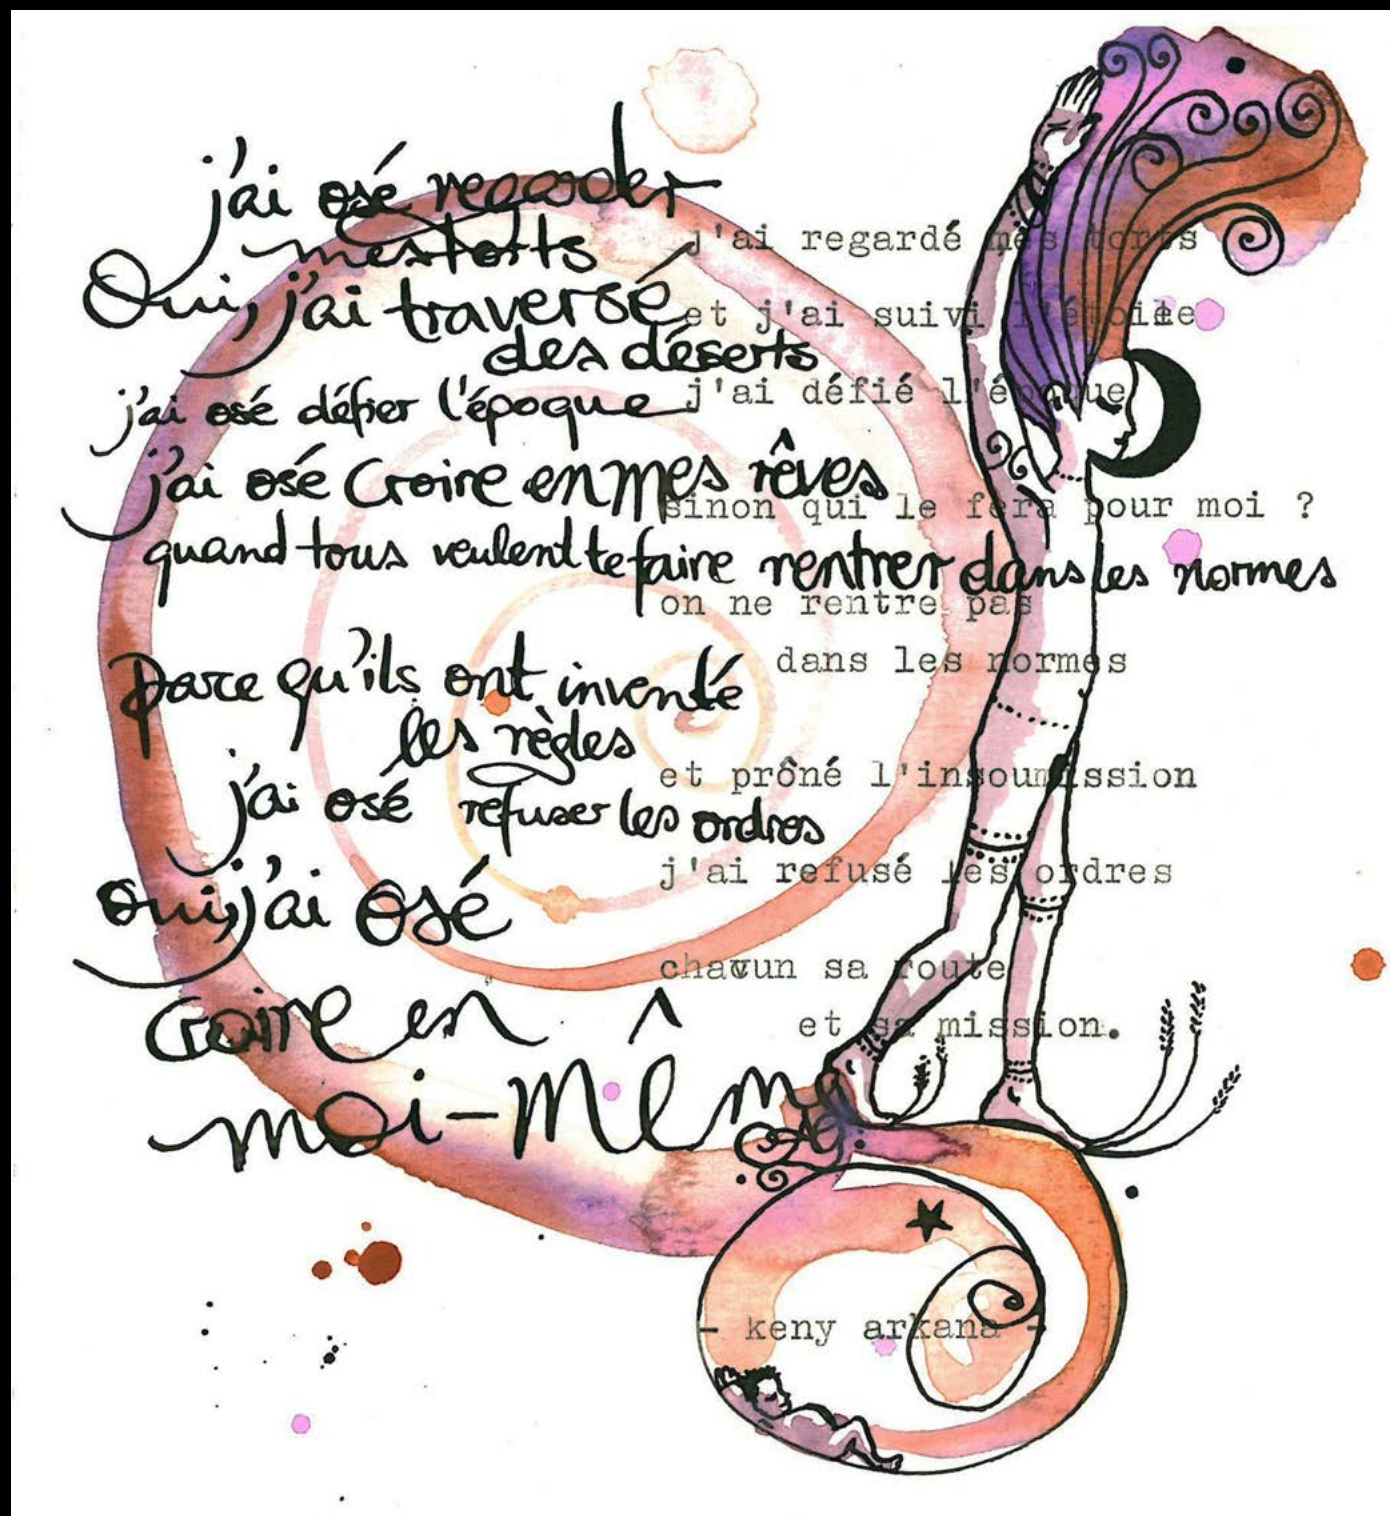 j'ai osé regarder
mes torts
Oui, j'ai traversé
des déserts
j'ai osé défier l'époque
j'ai osé Croire en mes rêves
quand tous veulent te faire rentrer dans les normes
parce qu'ils ont inventé
les règles
j'ai osé refuser les ordres
oui, j'ai osé
croire en
moi-même
j'ai regardé mes torts
et j'ai suivi l'étoile
j'ai défié l'époque
sinon qui le fera pour moi ?
on ne rentre pas
dans les normes
et prôné l'insoumission
j'ai refusé les ordres
chacun sa route
et sa mission.
- keny arkana -